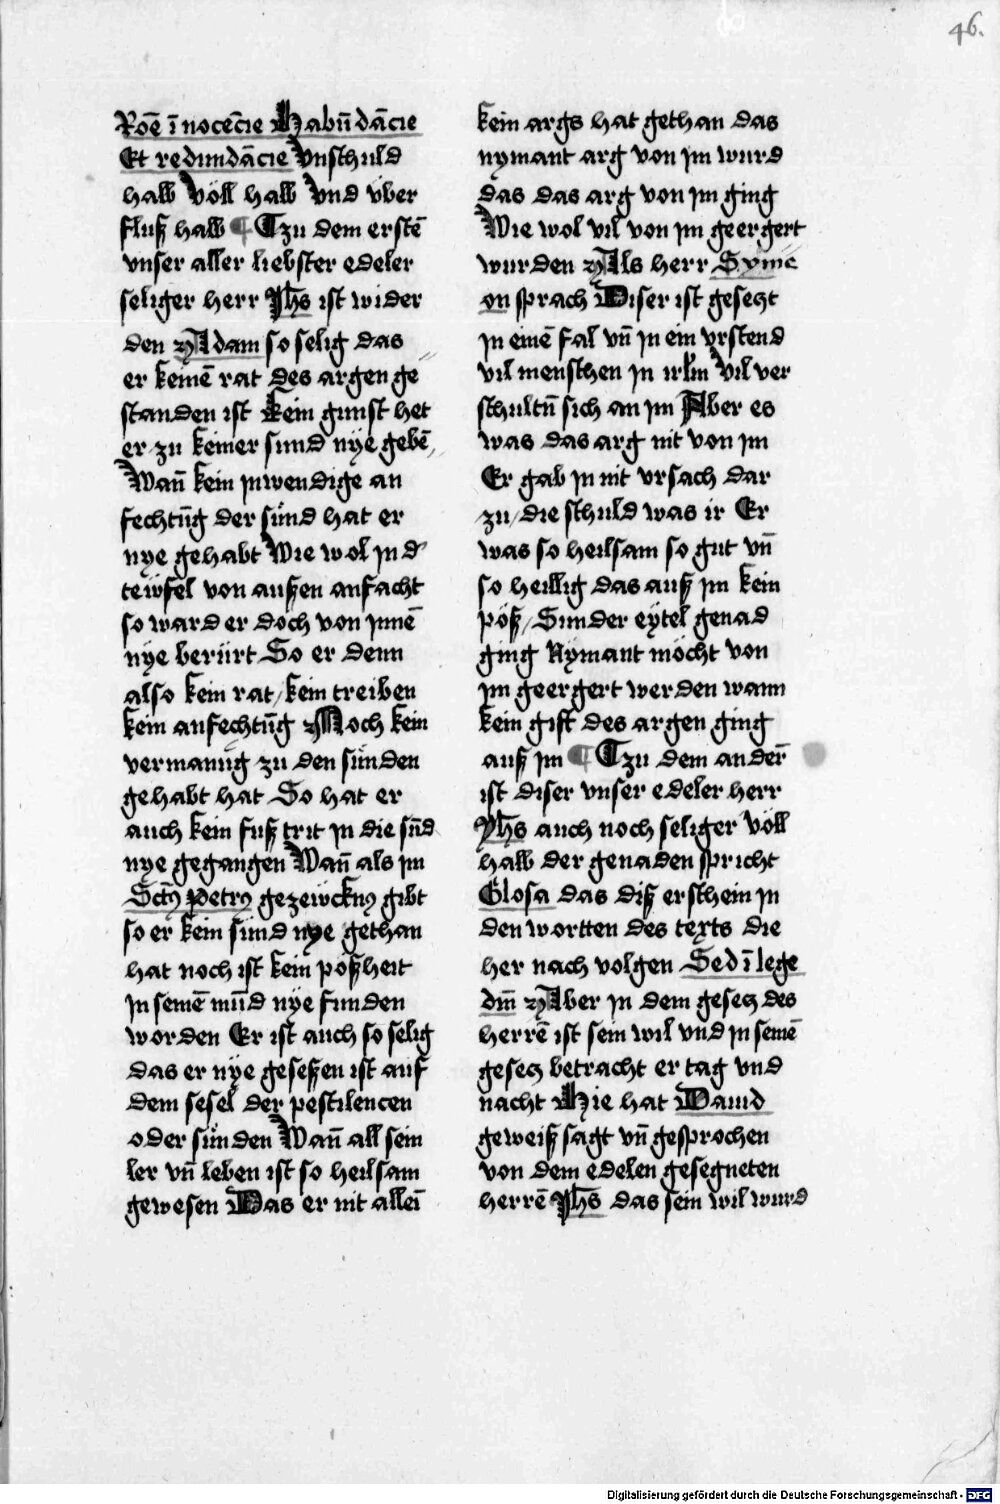 46.
Roē īnocēcie Habūdācie
Et redundācie Vnschuld
halb völl halb Vnd über
fluß halb ¶ Tzu dem erstē
vnser aller liebster edeler
seliger herr Jhs ist wider
den Adam so selig das
er keinē rat des argen ge
standen ist kein gunst het
er zu keiner sund nÿe gebē
Wañ kein jnwendige an
fechtūg der sünd hat er
nye gehabt Wie wol jn d
tewfel von außen anfacht
so ward er doch von jnnē
nÿe berürt So er denn
also kein rat / kein treiben
kein anfechtūg Noch kein
vermanūg zu den sünden
gehabt hat So hat er
auch kein fuß trit jn die sūd
nye gegangen Wañ als jm
Sctꝰ Petrꝰ gezewcknꝰ gibt
so er kein sünd nye gethan
hat noch ist kein pößheit
jn seinē mūd nye funden
worden Er ist auch so selig
das er nÿe geseßen ist auf
dem sesel der pestilencen
oder sünden Wañ all sein
ler vñ leben ist so heilsam
gewesen Das er nit alleī
kein args hat gethan das
nymant arg von jm wurd
das das arg von jm ging
Wie wol vil von jm geergert
wurden Als herr Syme
on sprach Diser ist gesetzt
jn einē fal vñ jn ein vrstend
vil menschen jn irlm̄ Vil ver
schultn̄ sich an jm Aber es
was das arg nit von jm
Er gab jn nit vrsach dar
zu / die schuld was ir Er
was so heilsam so gut vñ
so heillig das auß jm kein
pöß / Sunder eÿtel genad
ging Nÿmant möcht von
jm geergert werden wann
kein gift des argen ging
auß jm ¶ Tzu dem anderī
ist diser vnser edeler herr
Yhs auch noch seliger völl
halb der genaden spricht
Glosa das diß erschein jn
den wortten des texts die
her nach volgen Sed ī lege
dm̄ Aber jn dem gesetz des
herrē ist sein wil vnd jn seinē
gesetz betracht er tag vnd
nacht Hie hat Dauid
geweißsagt vñ gesprochen
von dem edelen gesegneten
herrē Jhs das sein wil wurd
Digitalisierung gefördert durch die Deutsche Forschungsgemeinschaft - DFG